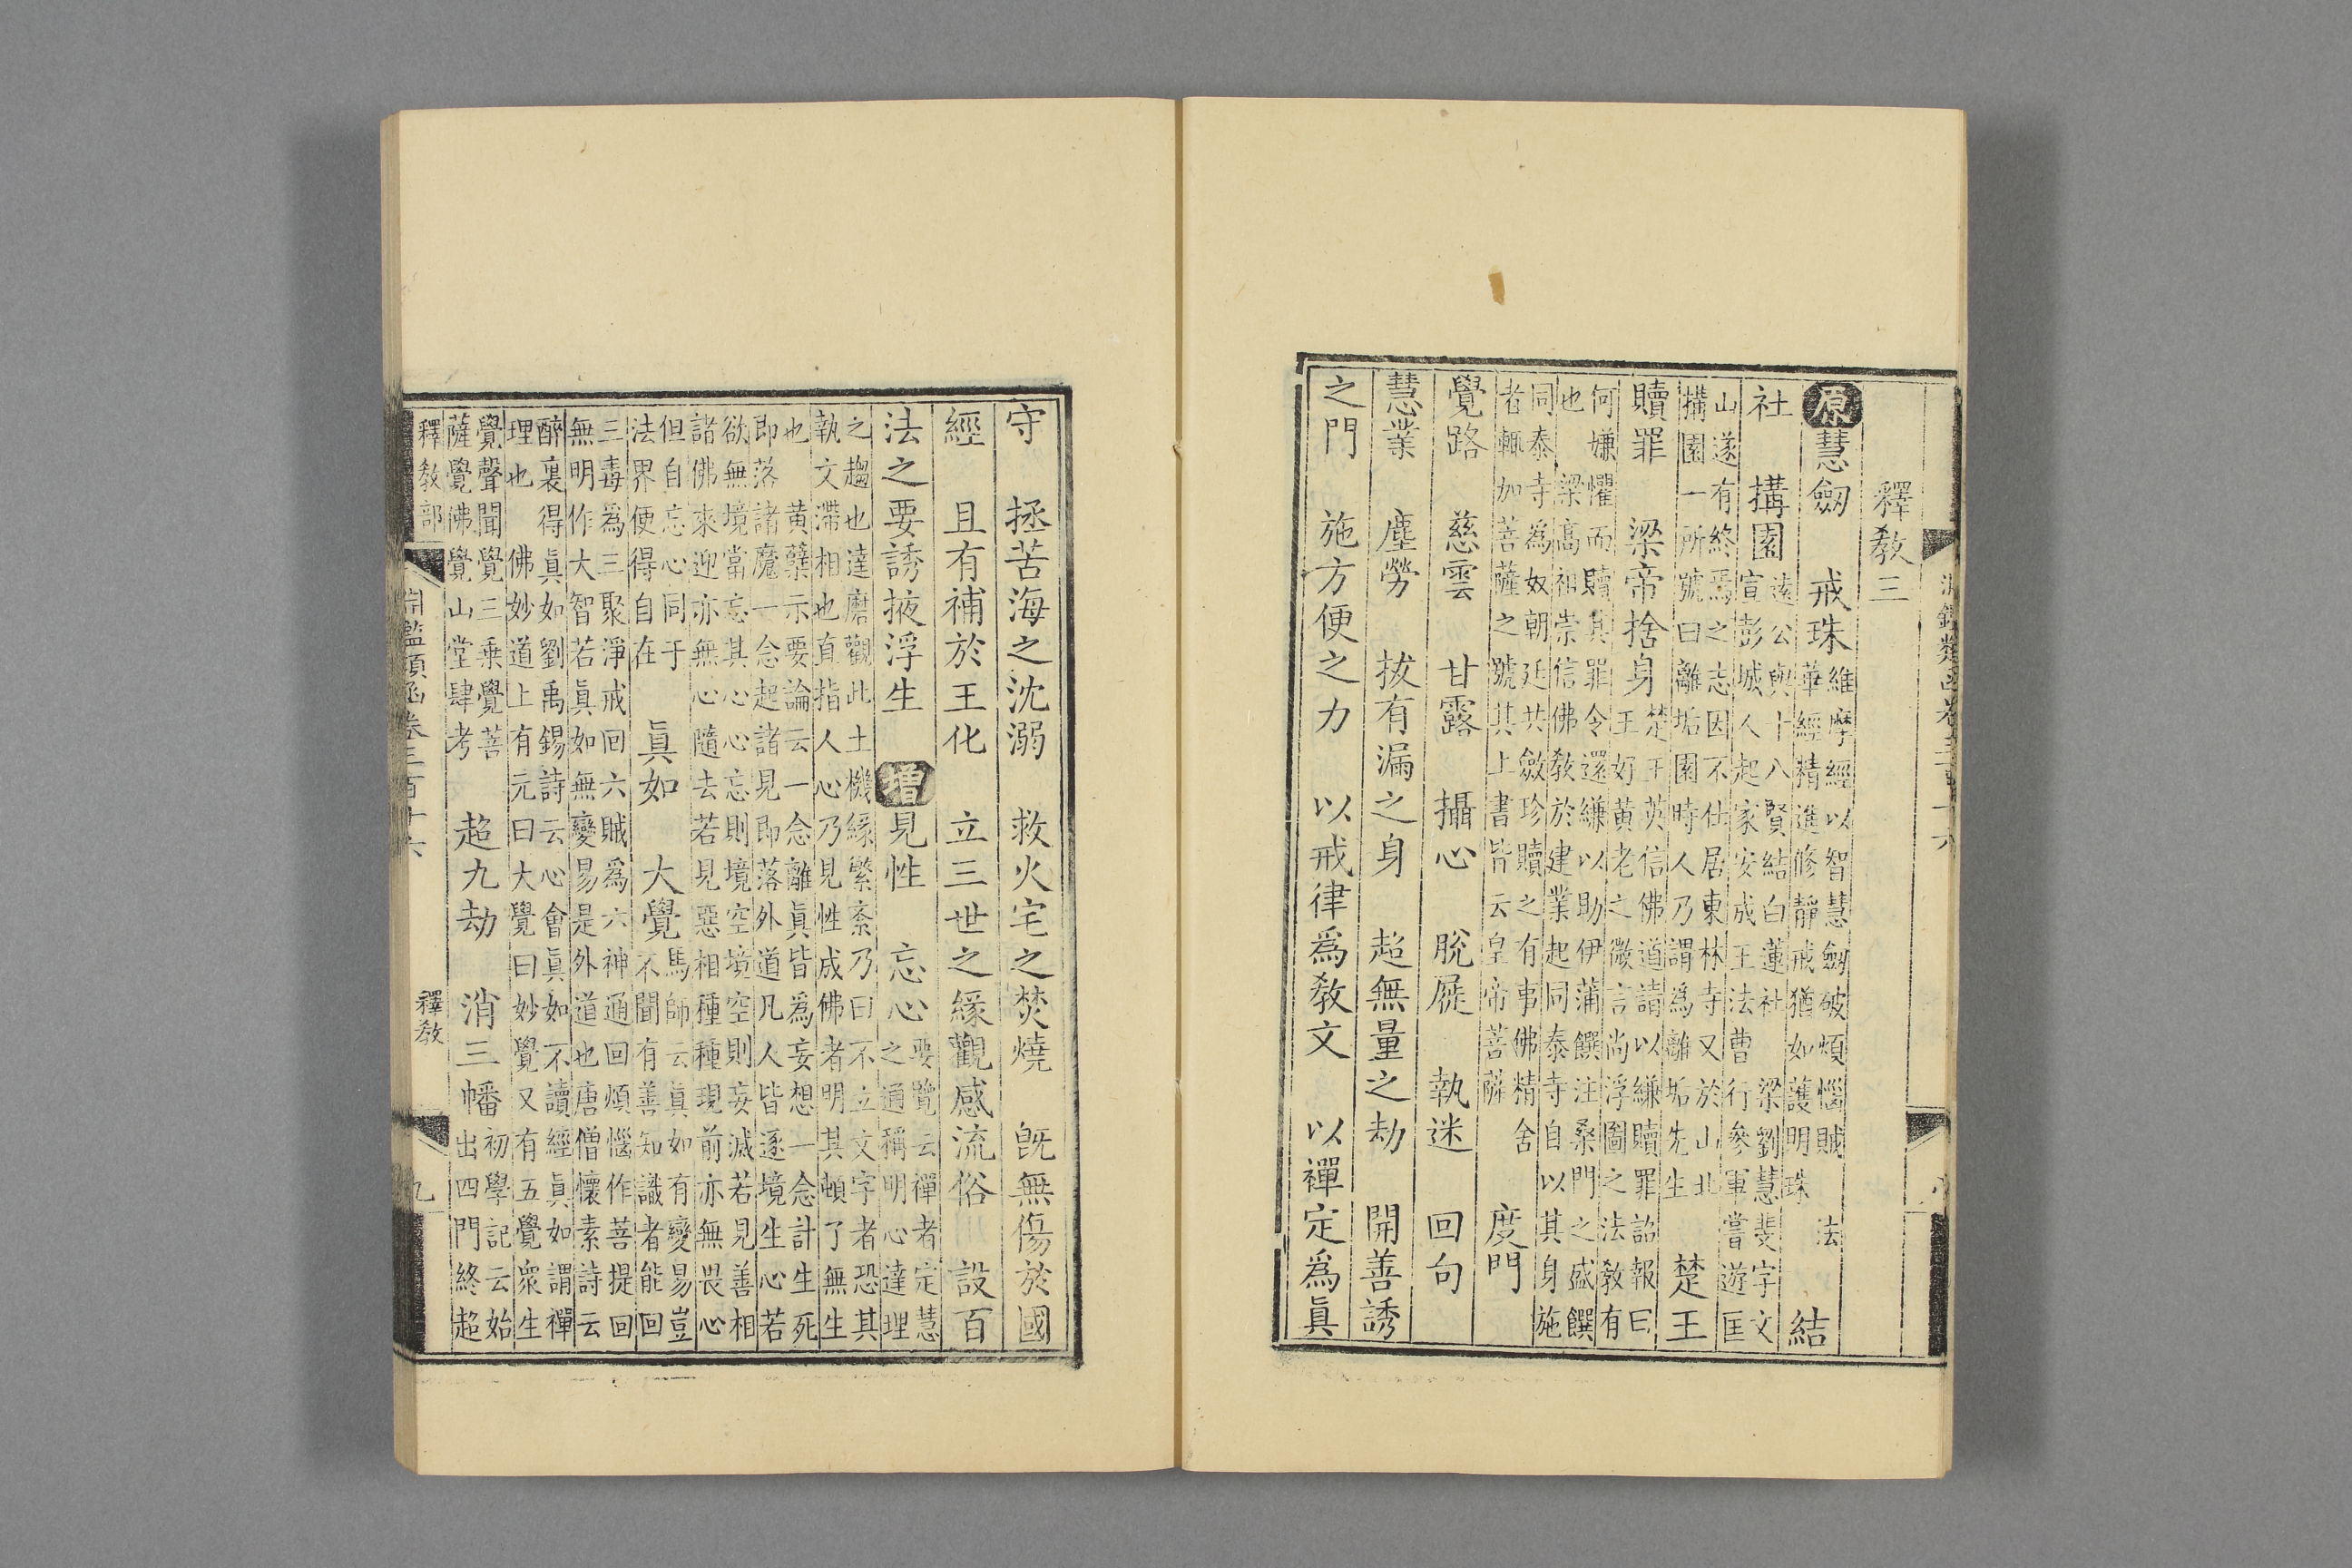 淵鑑類函卷三百十六
釋教三
原慧劒　戒珠
維摩經以智慧劒破煩惱賊　法
華經精進修靜戒猶如護明珠
結
社　搆園
遠公與十八賢結白蓮社　梁劉慧斐字文
宣彭城人起家安成王法曹行參軍嘗遊匡
山遂有終焉之志因不仕居東林寺又於山北
搆園一所號曰離垢園時人乃謂為離垢先生
楚王
贖罪　梁帝捨身
楚王英信佛道請以縑贖罪詔報曰
王好黄老之微言尚浮圖之法教有
何嫌懼而贖其罪令還縑以助伊蒲饌注桑門之盛饌
也　梁高祖崇信佛教於建業起同泰寺自以其身施
同泰寺為奴朝廷共斂珍贖之有事佛精舍
者輒加菩薩之號其上書皆云皇帝菩薩
度門
覺路　慈雲　甘露　攝心　脫屣　執迷　回句
慧業　塵勞　拔有漏之身　超無量之劫　開善誘
之門　施方便之力　以戒律爲教文　以禪定爲眞
守　拯苦海之沈溺　救火宅之焚燒　旣無傷於國
經　且有補於王化　立三世之緣觀感流俗　設百
法之要誘掖浮生　增見性　忘心
要覽云禪者定慧
之通稱明心達理
之趨也達磨觀此土機緣繁紊乃曰不立文字者恐其
執文滯相也直指人心乃見性成佛者明其頓了無生
也　黄蘗示要論云一念離眞皆為妄想一念計生死
即落諸魔一念起諸見即落外道凡人皆逐境生心若
欲無境當忘其心心忘則境空境空則妄滅若見善相
諸佛來迎亦無心隨去若見惡相種種現前亦無畏心
但自忘心同于
法界便得自在
眞如　大覺
馬師云眞如有變易豈
不聞有善知識者能回
三毒為三聚淨戒回六賊為六神通回煩惱作菩提回
無明作大智若眞如無變易是外道也唐僧懷素詩云
醉裏得眞如劉禹錫詩云心會眞如不讀經眞如謂禪
理也　佛妙道上有元曰大覺曰妙覺又有五覺衆生
覺聲聞覺三乗覺菩
薩覺佛覺山堂肆考
超九劫　消三幡
初學記云始
出四門終超
釋教部　淵鑑類函卷三百十六　釋教　九